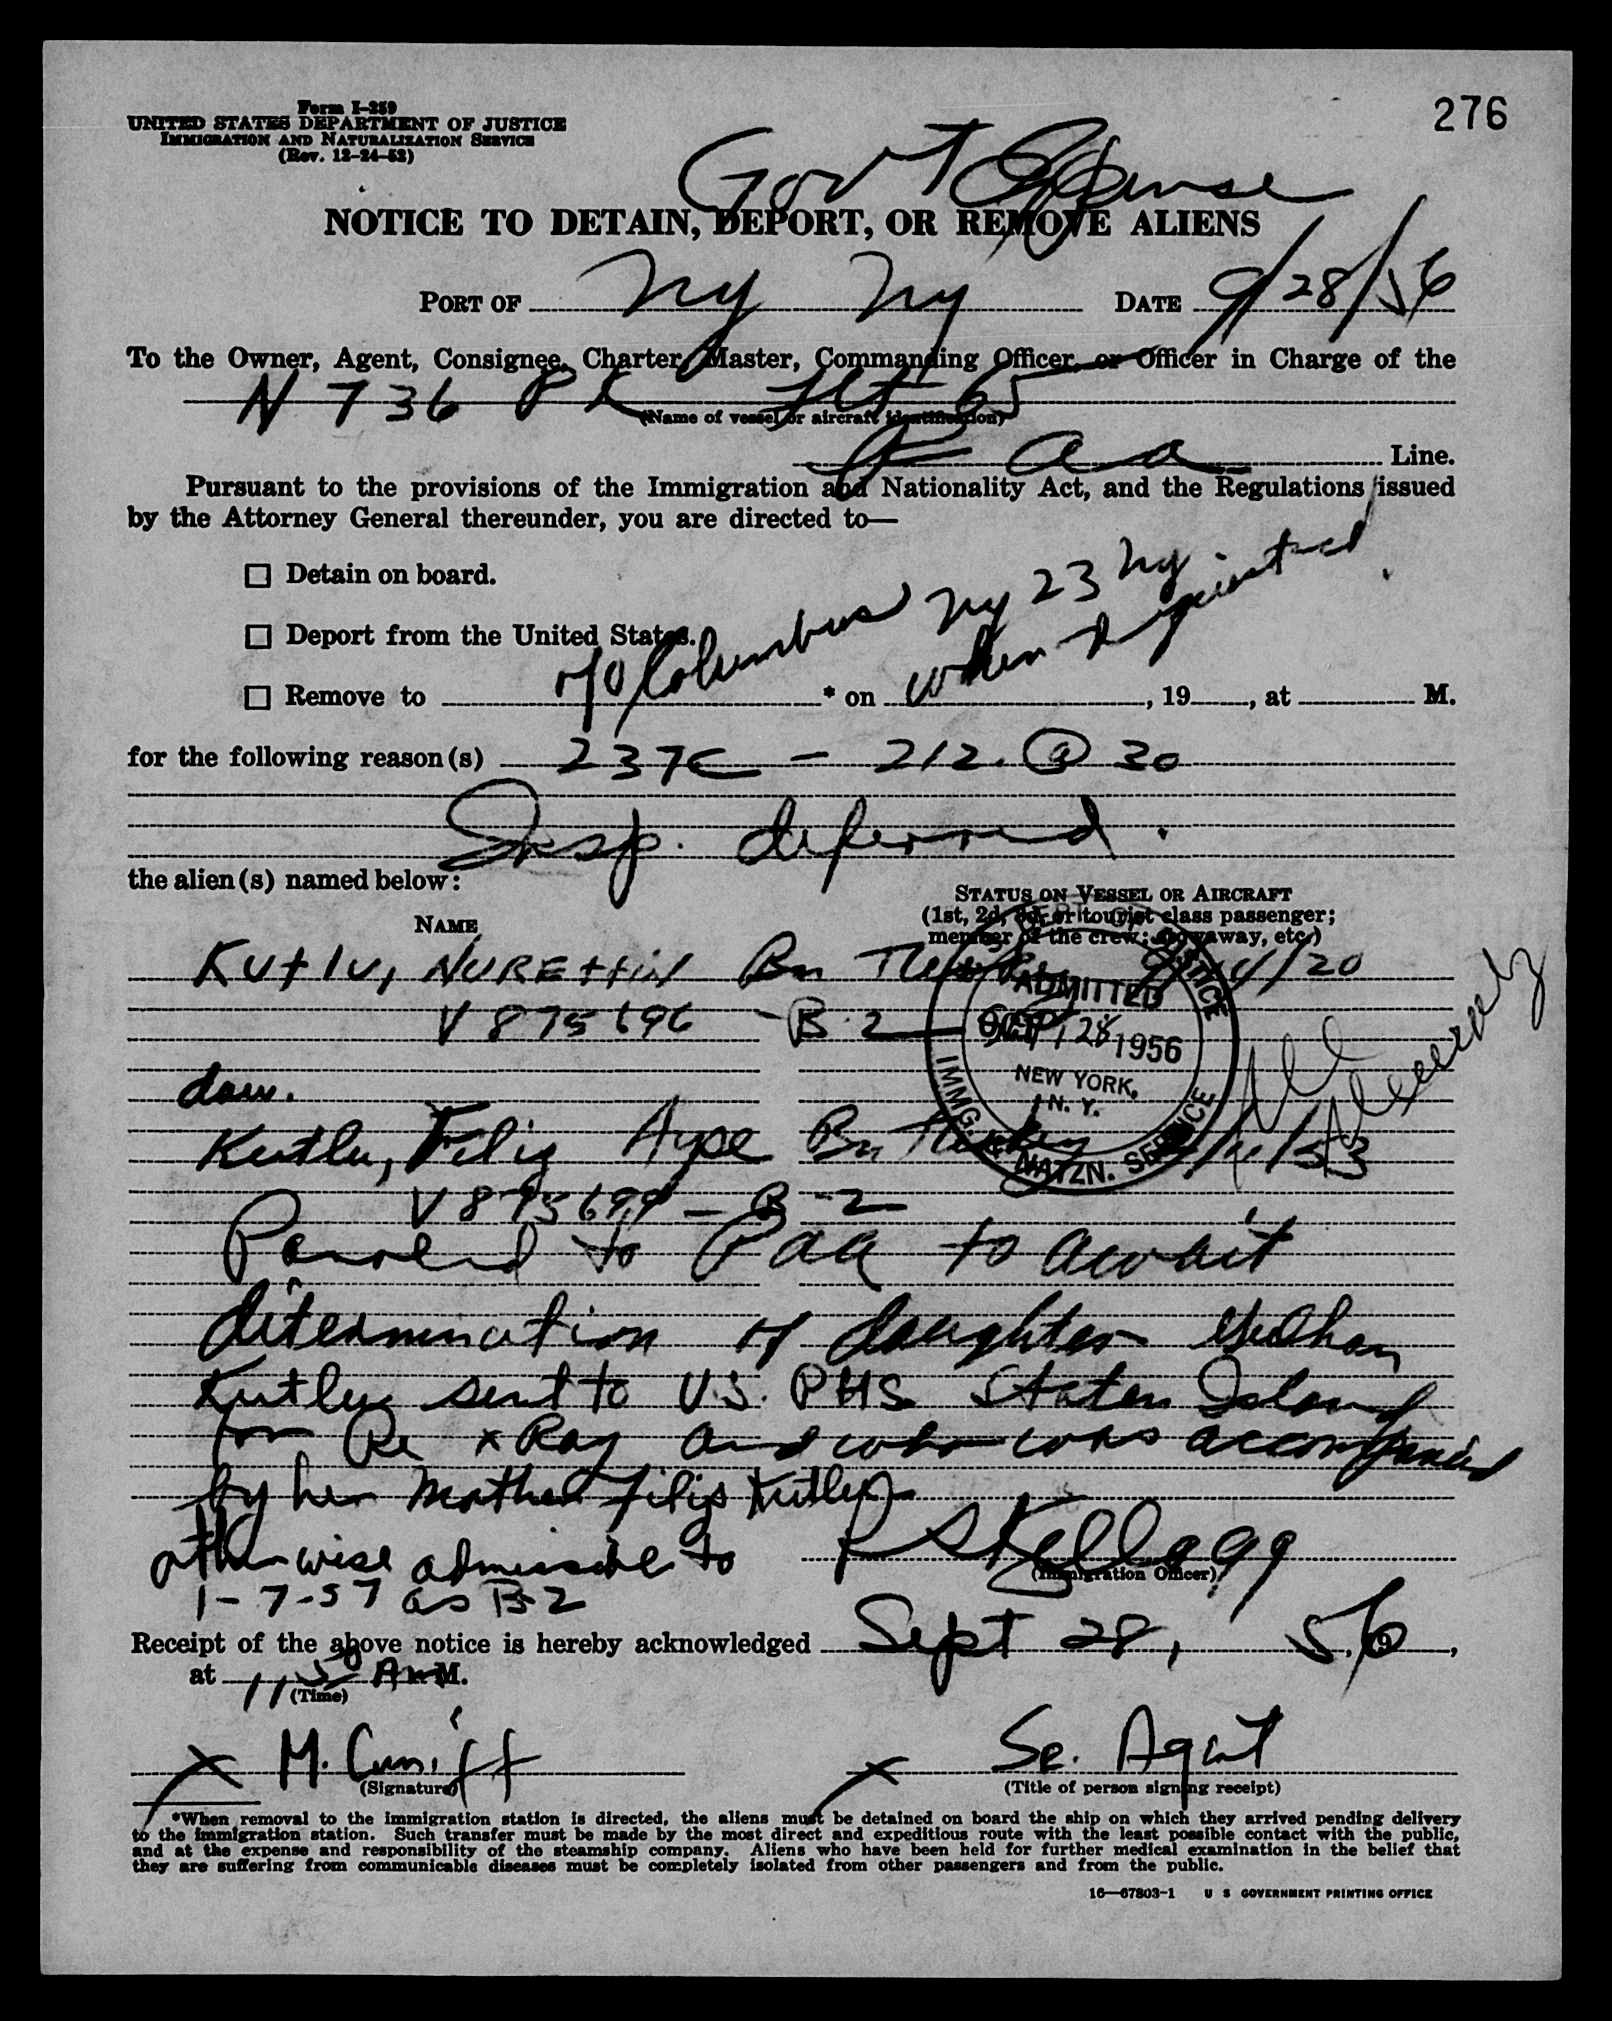 Form I-259
UNITED STATES DEPARTMENT OF JUSTICE
IMMIGRATION AND NATURALIZATION SERVICE
(Rev. 12-24-52)
276
Gov't Expense
NOTICE TO DETAIN, DEPORT, OR REMOVE ALIENS
PORT OF NY NY DATE 9/28/56
To the Owner, Agent, Consignee, Charter, Master, Commanding Officer, or Officer in Charge of the
N 736 PA Flt 65
(Name of vessel or aircraft identification)
P a a Line.
Pursuant to the provisions of the Immigration and Nationality Act, and the Regulations issued
by the Attorney General thereunder, you are directed to—
☐ Detain on board.
☐ Deport from the United States.
☐ Remove to 70 Columbus NY 23 NY * on when requested, 19 , at M.
for the following reason(s) 237C - 212. (a) 30
Insp. deferred.
the alien(s) named below:
NAME
STATUS ON VESSEL OR AIRCRAFT
(1st, 2d, 3d, or tourist class passenger;
member of the crew; stowaway, etc.)
Kutlu, NUREttin Bn Turkey /20
V 875696 - B-2
ADMITTED
28 1956
NEW YORK,
N. Y.
IMMG. & NATZN. SERVICE
dau.
Kutlu, Filiz Ayse Bn Turkey /53
V 875699 - B-2
Paroled to Paa to await
ditermination of daughter
Kutlu sent to U.S. PHS Staten Island
for Re x Ray and who was accompanied
by her Mother Filiz Kutlu
otherwise admissible to
1-7-57 as B-2
P S Kellogg
(Immigration Officer)
Receipt of the above notice is hereby acknowledged Sept 28, 56,
at 11 50 AM M.
(Time)
x M. Cuniff
(Signature)
x Se. Agent
(Title of person signing receipt)
*When removal to the immigration station is directed, the aliens must be detained on board the ship on which they arrived pending delivery
to the immigration station. Such transfer must be made by the most direct and expeditious route with the least possible contact with the public,
and at the expense and responsibility of the steamship company. Aliens who have been held for further medical examination in the belief that
they are suffering from communicable diseases must be completely isolated from other passengers and from the public.
16—67803-1 U S GOVERNMENT PRINTING OFFICE